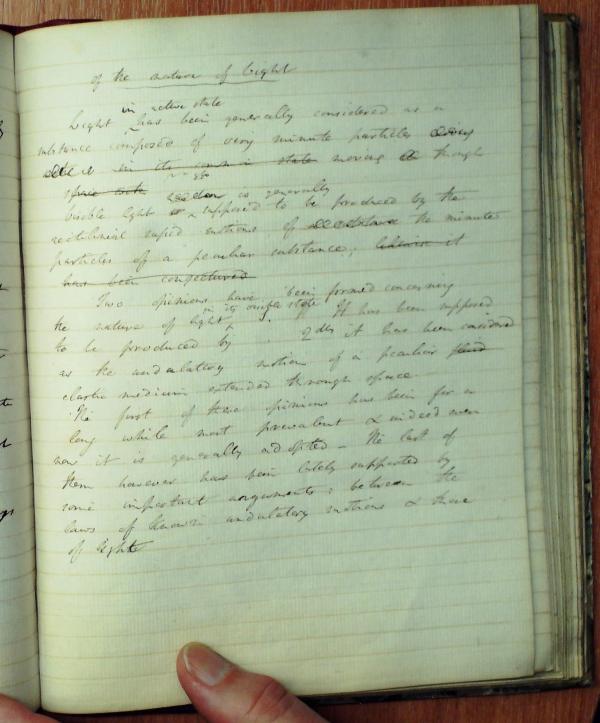 of the nature of Light
in active state
Light has been generally considered as a
substance composed of very minute particles
in its common state moving though
space
visible light is generally supposed to be produced by the
rectilineal rapid motions of the minute
particles of a peculiar substance; it
has been conjectured
Two opinions have been formed concerning
the nature of light in its visible state It has been supposed
to be produced by 2dly it has been considered
as the undulatory motion of a peculiar fluid
elastic medium extended through space
The first of these opinions has been for a
long while most prevalent & indeed even
now it is generally adopted - The last of
them however has been lately supported by
some important arguments; between the
laws of known undulatory motions & those
of light